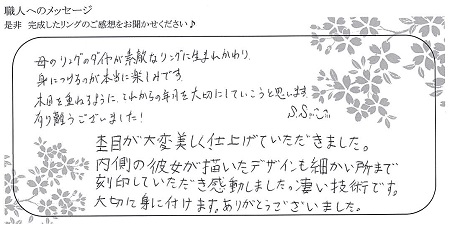 職人へのメッセージ
是非 完成したリングのご感想をお聞かせください♪
母のリングのダイヤが素敵なリングに生まれかわり、
身につけるのが本当に楽しみです。
木目を重ねるように、これからの年月を大切にしていこうと思います
有り難うございました!
S.S
杢目が大変美しく仕上げていただきました。
内側の彼女が描いたデザインも細かい所まで
刻印していただき感動しました。凄い技術です。
大切に身に付けます。ありがとうございました。